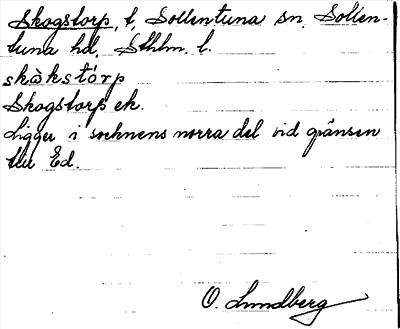 Skogstorp, t, Sollentuna sn, Sollen-
tuna hd, Sthlm. l.
skò̀kstórp
Skogstorp ek.
Ligger i socknens norra del vid gränsen
till Ed.
O. Lundberg